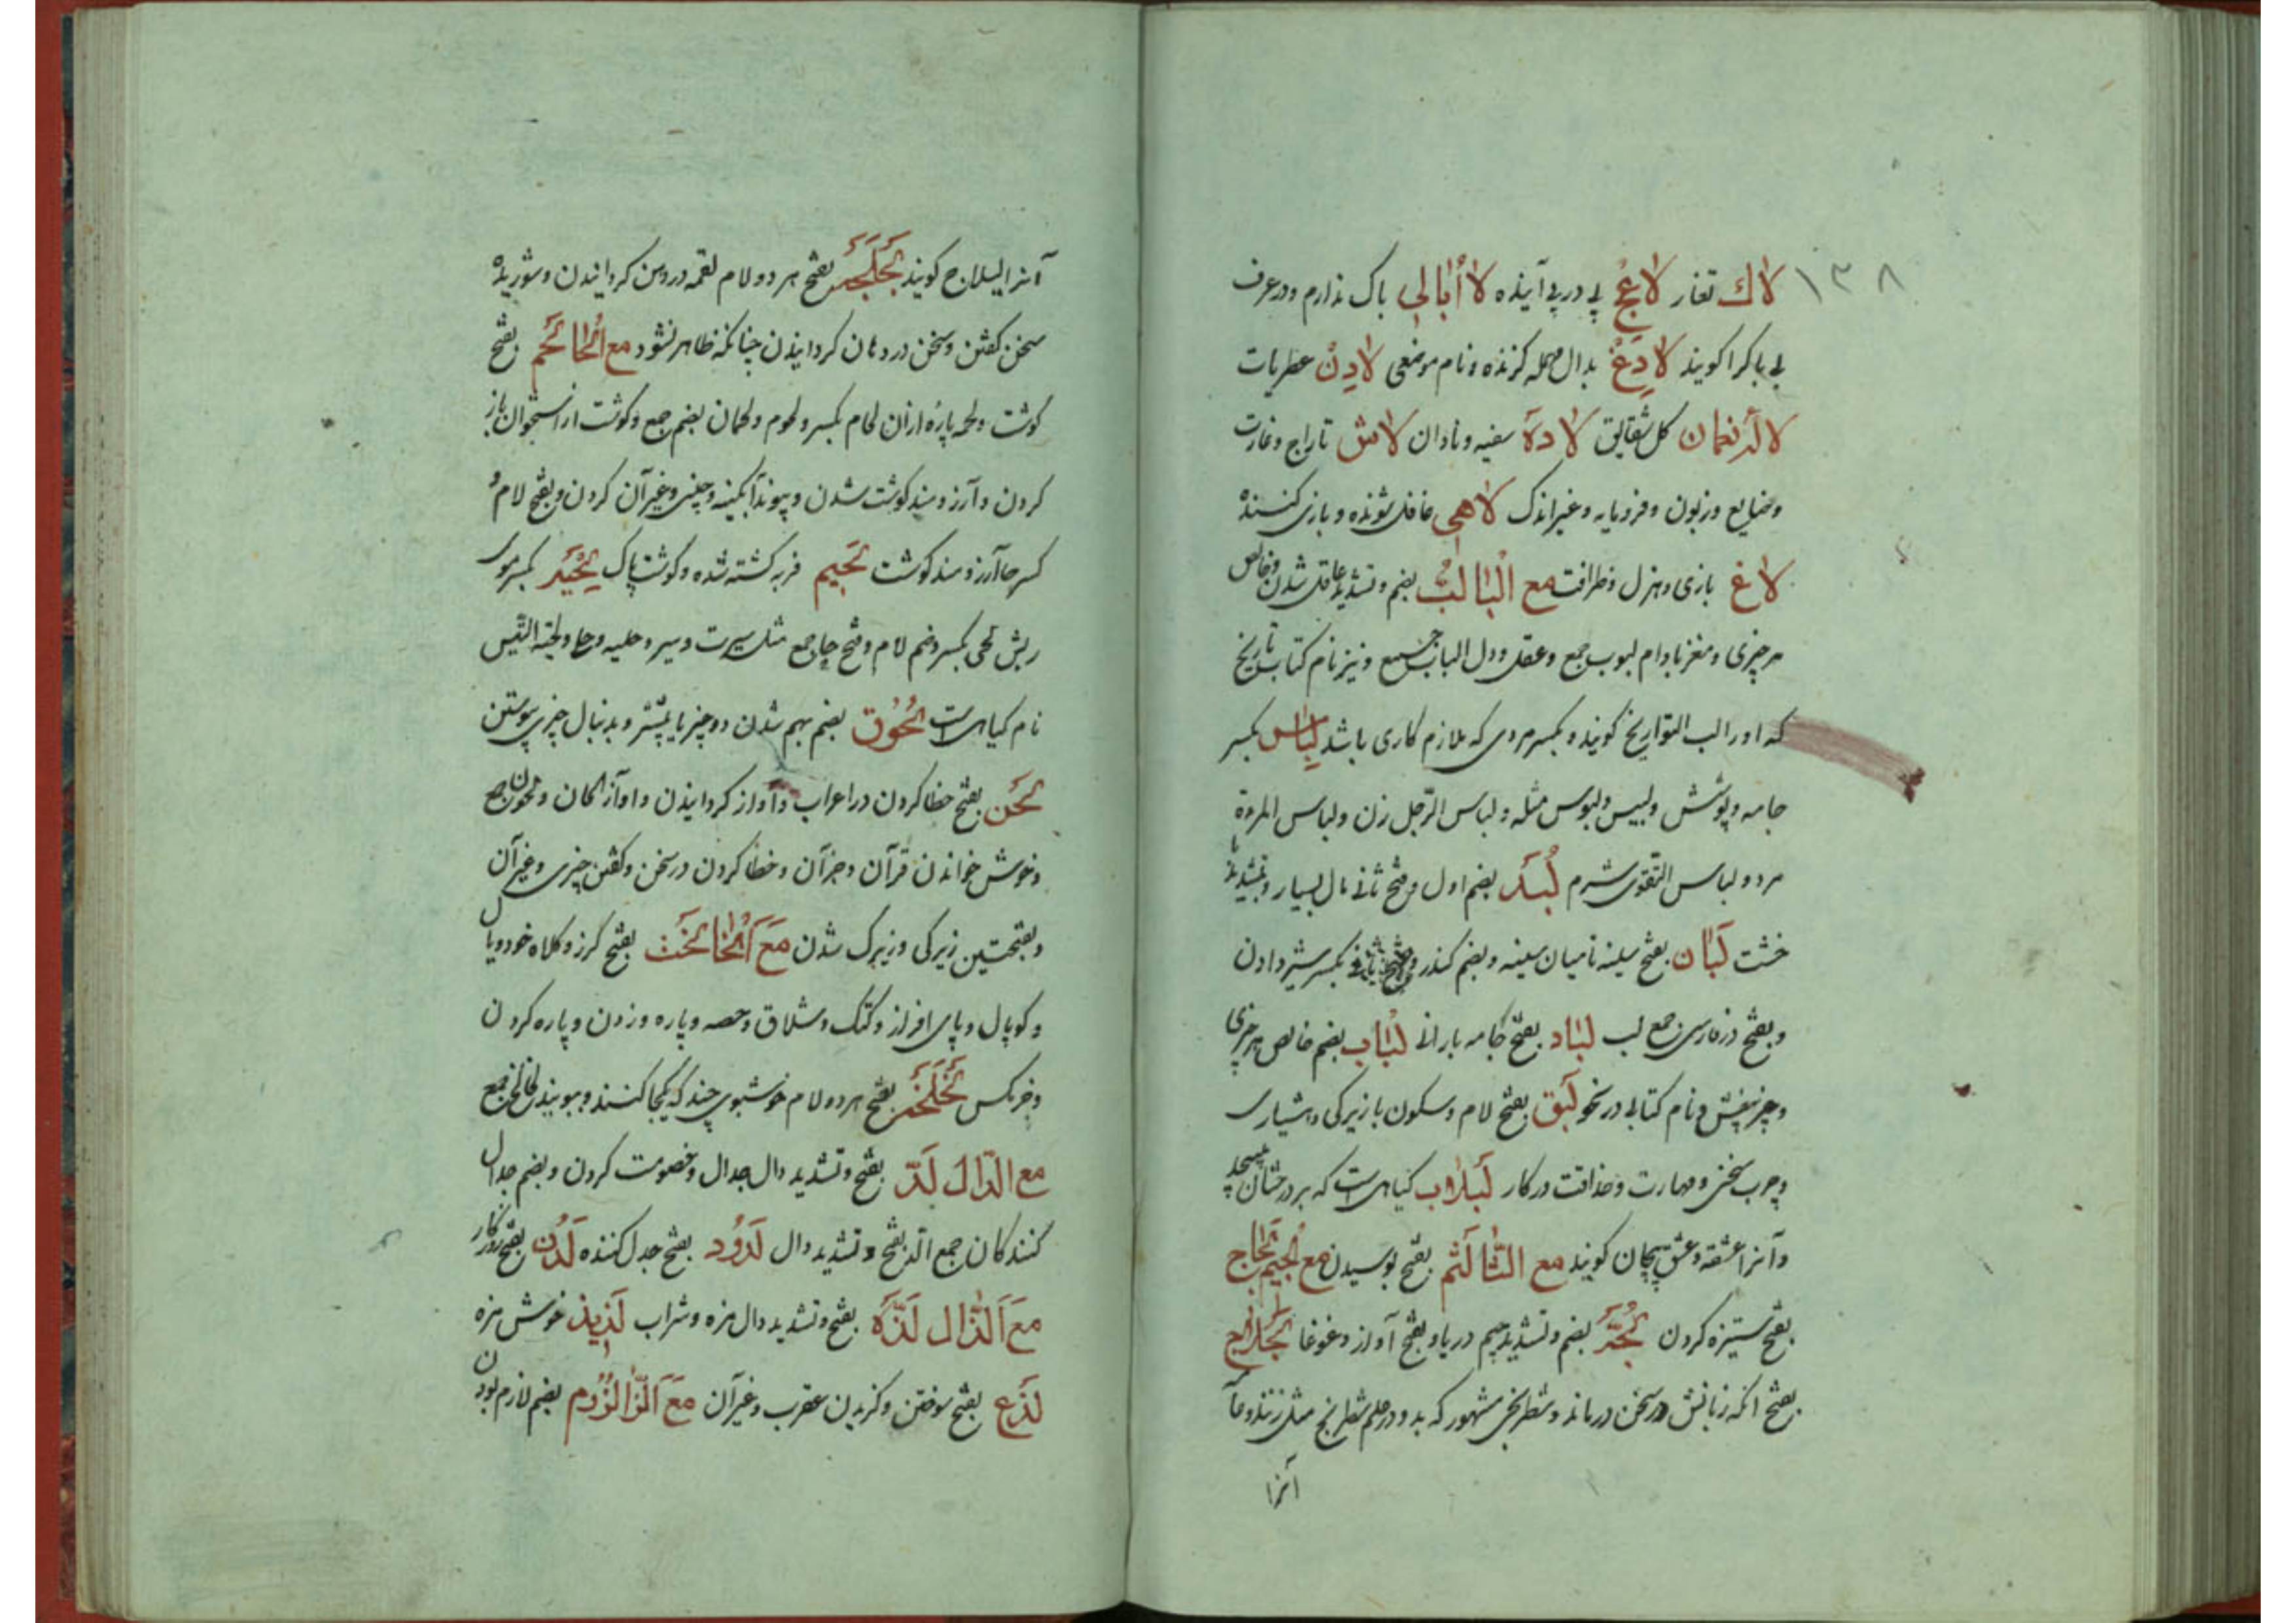 ۱۳۸
لاك تغار لاعج پی در پی آینده لا أبالی باک ندارم ودر عرف
بی باکرا کویند لادغ بدال مهمله کزنده ونام موضعی لادن عطریات
لاله نعمان کل شقایق لاده سفیه ونادان لاش تاراج وغارت
وضایع وزبون وفرومایه وغیر اندک لاهی غافل شونده وبازی کننده
لاغ بازی وهزل وظرافت مع البا لب بضم وتشدید عاقل شدن وخالص
هر چیزی ومغز بادام لبوب جمع وعقل ودل الباب جمع ونیز نام کتاب تاریخ
که اورا لب التواریخ کویند وبکسر مردی که ملازم کاری باشد لباس بکسر
جامه وپوشش ولبیس ولبوس مثله ولباس الرجل زن ولباس المرءة
مرد ولباس التقوی شرم لبد بضم اول وفتح ثانی مال بسیار وبتشدید با
خشت لبان بفتح سینه تا میان سینه وبضم کندر بکسر شیر دادن
وبفتح در فارسی جمع لب لباد بفتح جامه بارانی لباب بضم خالص هر چیزی
وچیز نفیس ونام کتابی در نحو لبق بفتح لام وسکون با زیرکی وهشیاری
وچرب سخنی ومهارت وحذاقت در کار لبلاب کیاهی است که بر درختان پیچد
وآنرا عشقه وعشق پیچان کویند مع الثا لثم بفتح بوسیدن مع الجیم لجاج
بفتح ستیزه کردن لجه بضم وتشدید جیم دریا وبفتح آواز وغوغا لجلاج
بفتح انکه زبانش در سخن درماند وشطرنجی مشهور که بدو در علم شطرنج مثل زنند وعا
آنرا
آنرا لیلاج کویند لجلجه بفتح هر دو لام لقمه در دهن کردانیدن وشوریده
سخن کفتن وسخن در دهان کردانیدن چنانکه ظاهر نشود مع الحا لحم بفتح
کوشت ولحمه پاره ازان لحام بکسر ولحوم ولحمان بضم جمع وکوشت از استخوان باز
کردن وآرزومند کوشت شدن وپیوند آبکینه وچینی وغیر آن کردن وبفتح لام و
کسر حا آرزومند کوشت لحیم فربه کشته شده وکوشت پاک لحیه بکسر موی
ریش لحی بکسر وضم لام وفتح حا جمع مثل سیرت وسیر وحلیه وحلی ولحیة التیس
نام کیاهی است لحوق بضم بهم شدن دو چیز یا بیشتر وبدنبال چیزی پیوستن
لحن بفتح خطا کردن در اعراب وآواز کردانیدن وآواز الحان ولحون جمع
وخوش خواندن قرآن وجز آن وخطا کردن در سخن وکفتن چیزی وغیر آن
وبفتحتین زیرکی وزیرک شدن مع الخا لخت بفتح کرز وکلاه خود ویال
وکوپال وپای افزار وکتک وشلاق وحصه وپاره وزدن وپاره کردن
لخلخه بفتح هر دو لام خوشبوی چند که یکجا کنند وببویند لخالخ جمع
مع الدال لد بفتح وتشدید دال جدال وخصومت کردن وبضم جدال
کنندکان جمع الد بفتح وتشدید دال لدود بفتح جدل کننده لدن بفتح
مع الذال لذه بفتح وتشدید دال مزه وشراب لذیذ خوش مزه
لذع بفتح سوختن وکزیدن عقرب وغیر آن مع الزا لزوم بضم لازم بودن